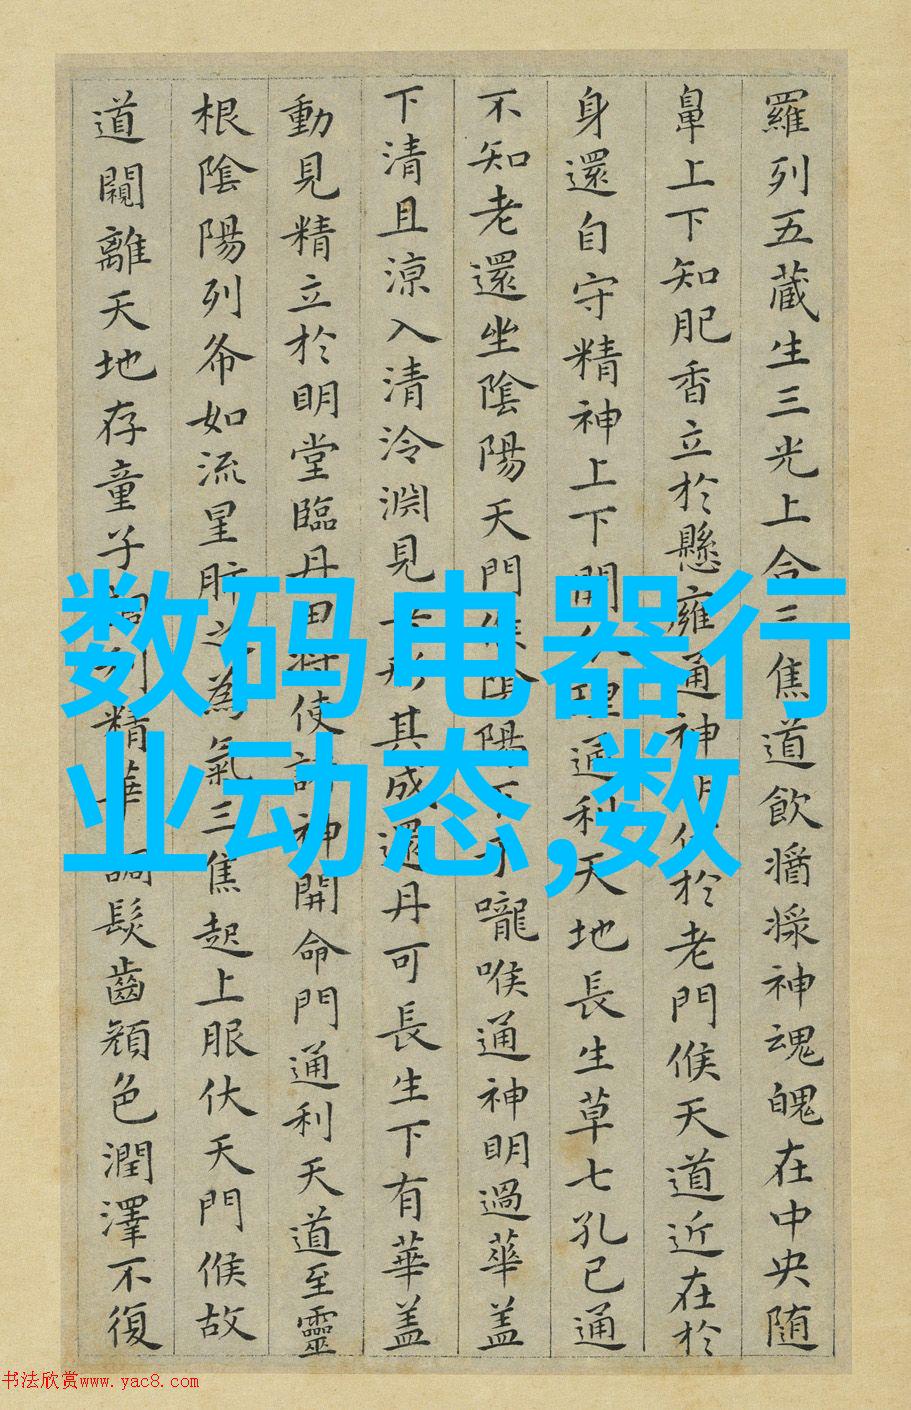 羅列五蔵生三光上合三焦道飲醬滌神魂魄在中央随
鼻上下知肥香立於懸雍通神明伏於老門候天道近在於
身還自守精神上下開分理通利天地長生草七孔已通
不知老還坐陰陽天門候陰陽下于嚨喉通神明過華盖
下清且涼入清泠淵見吾形其成還丹可長生下有華盖
動見精立於明堂臨丹田将使諸神開命門通利天道至靈
根陰陽列布如流星肝之為氣三焦起上服伏天門候故
道闚離天地存童子調利精華調髮齒顔色潤澤不復
数码电器行
业动态,数
书法欣赏www.yac8.com